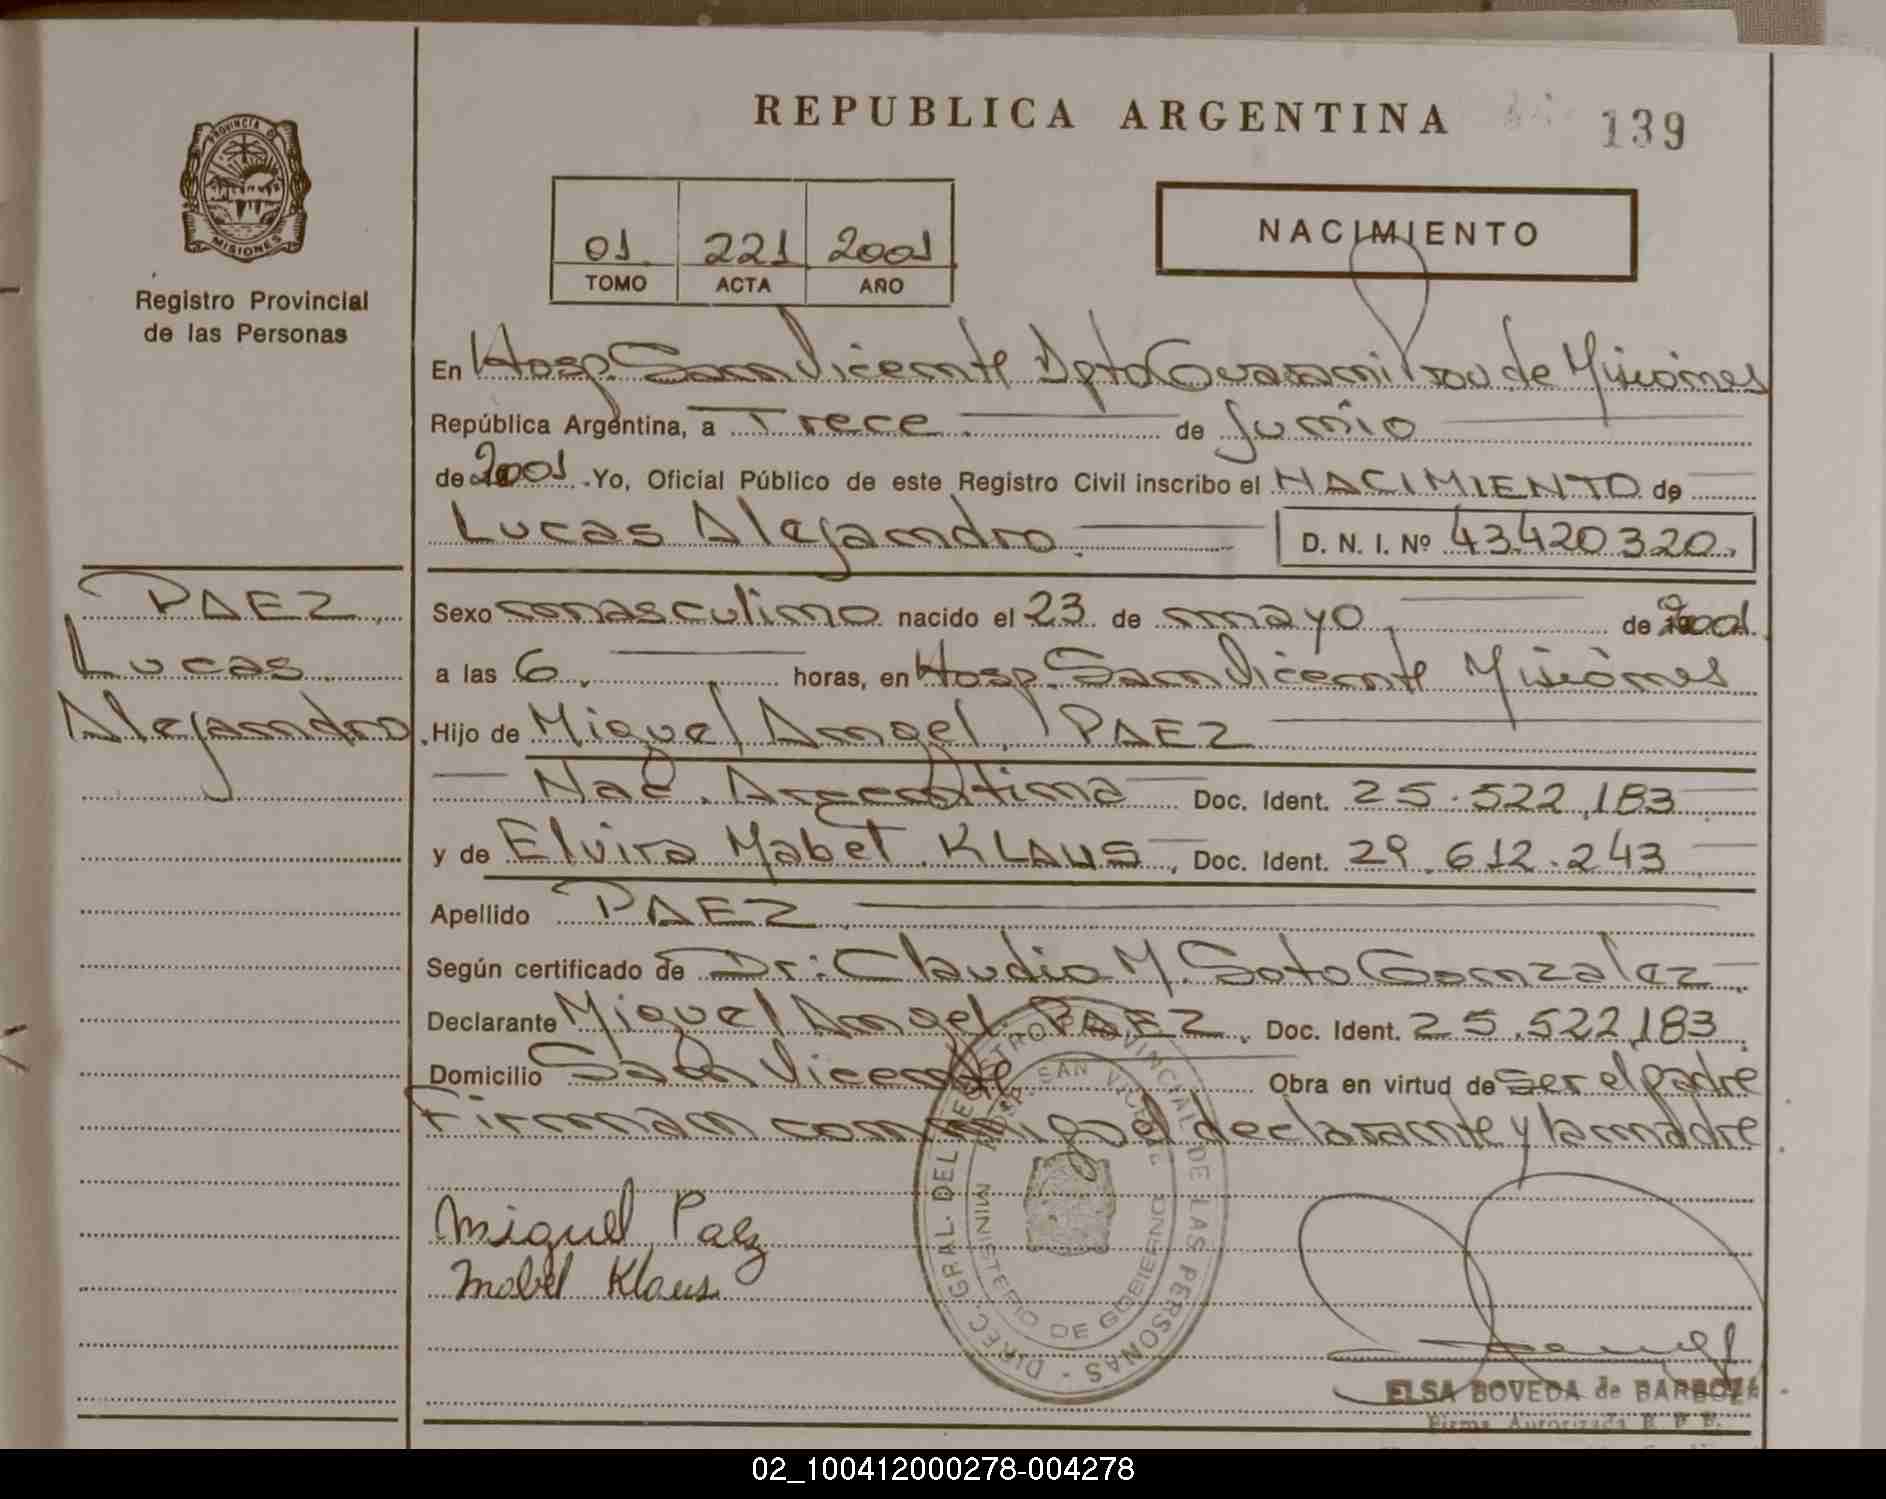 REPUBLICA ARGENTINA
139
PROVINCIA DE
MISIONES
Registro Provincial
de las Personas
01 221 2001
TOMO ACTA AÑO
NACIMIENTO
En Hosp. San Vicente Dpto Guarani Prov de Misiones
República Argentina, a Trece de Junio
de 2001. Yo, Oficial Público de este Registro Civil inscribo el NACIMIENTO de
Lucas Alejandro. D. N. I. Nº 43.420.320.
PAEZ
Lucas
Alejandro
Sexo masculino nacido el 23 de mayo de 2001.
a las 6 horas, en Hosp. San Vicente Misiones
Hijo de Miguel Angel PAEZ
Nac. Argentina Doc. Ident. 25.522.183
y de Elvira Mabel KLAUS, Doc. Ident. 29.612.243
Apellido PAEZ
Según certificado de Dr: Claudio M. Soto Gonzalez
Declarante Miguel Angel PAEZ, Doc. Ident. 25.522.183
Domicilio San Vicente Obra en virtud de ser el padre
Firman conmigo el declarante y la madre
Miguel Paez
Mabel Klaus
DIREC. GRAL. DEL REGISTRO PROVINCIAL DE LAS PERSONAS -
SAN VICENTE
MINISTERIO DE GOBIERNO
ELSA BOVEDA de BARBOZA
Firma Autorizada R. P. P.
02_100412000278-004278